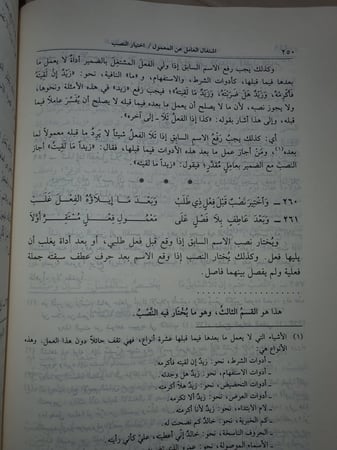 ٢٥٠ اشتغال العامل عن المعمول / اختيار النصب
وكذلك يجب رفع الاسم السابق إذا ولي الفعل المشتغل بالضمير أداةٌ لا يعمل ما
بعدها فيما قبلها، كأدوات الشرط، والاستفهام، و«ما» النافية، نحو: «زيدٌ إن لقيتَه
فأكرمه، وزيدٌ هل ضربتَه، وزيدٌ ما لقيتُه»، فيجب رفع «زيد» في هذه الأمثلة ونحوها،
ولا يجوز نصبه، لأن ما لا يصلح أن يعمل ما بعده فيما قبله لا يصلح أن يفسّر عاملاً فيما
قبله، وإلى هذا أشار بقوله: «كذا إذا الفعل تلا ـ إلى آخره».
أي: كذلك يجبُ رفعُ الاسم السابق إذا تلا الفعلُ شيئاً لا يَرِدُ ما قبله معمولاً لما
بعده(١)، ومَنْ أجاز عمل ما بعد هذه الأدوات فيما قبلها، فقال: «زيداً ما لقيتُ» أجاز
النصبَ مع الضمير بعاملٍ مقدَّرٍ؛ فيقول: «زيداً ما لقيته».
* * *
٢٦٠ ـ وَاخْتِيرَ نَصْبٌ قَبْلَ فِعْلٍ ذِي طَلَبْ وَبَعْدَ مَا إِيلاَؤُهُ الفِعْلَ غَلَبْ
٢٦١ ـ وَبَعْدَ عَاطِفٍ بِلاَ فَصْلٍ عَلَى مَعْمُولِ فِعْلٍ مُسْتَقِرٍّ أَوَّلاَ
هذا هو القسم الثالث، وهو ما يُختار فيه النَّصْبُ.
ويُختار نصب الاسم السابق إذا وقع قبل فعل طلبي، أو بعد أداة يغلب أن
يليها فعل. وكذلك يُختار النصب إذا وقع الاسم بعد حرف عطف سبقته جملة
فعلية ولم يفصل بينهما فاصل.
(١) الأشياء التي لا يعمل ما بعدها فيما قبلها عشرة أنواع، فهي تقف حائلاً دون هذا العمل. وهذه
الأنواع هي:
ـ أدوات الشرط، نحو: زيدٌ إن لقيته فأكرمه.
ـ أدوات الاستفهام، نحو: زيدٌ هل وجدته.
ـ أدوات التحضيض، نحو: خالدٌ هلاّ أكرمته.
ـ أدوات العرض، نحو: زيدٌ ألا تكرمه.
ـ لام الابتداء، نحو: زيدٌ لأنا أكرمته.
ـ كم الخبرية، نحو: خالدٌ كم نصحت له.
ـ الحروف الناسخة، نحو: خالدٌ إني أعطيته، عليٌّ كأني رأيته.
ـ الأسماء الموصولة، نحو: